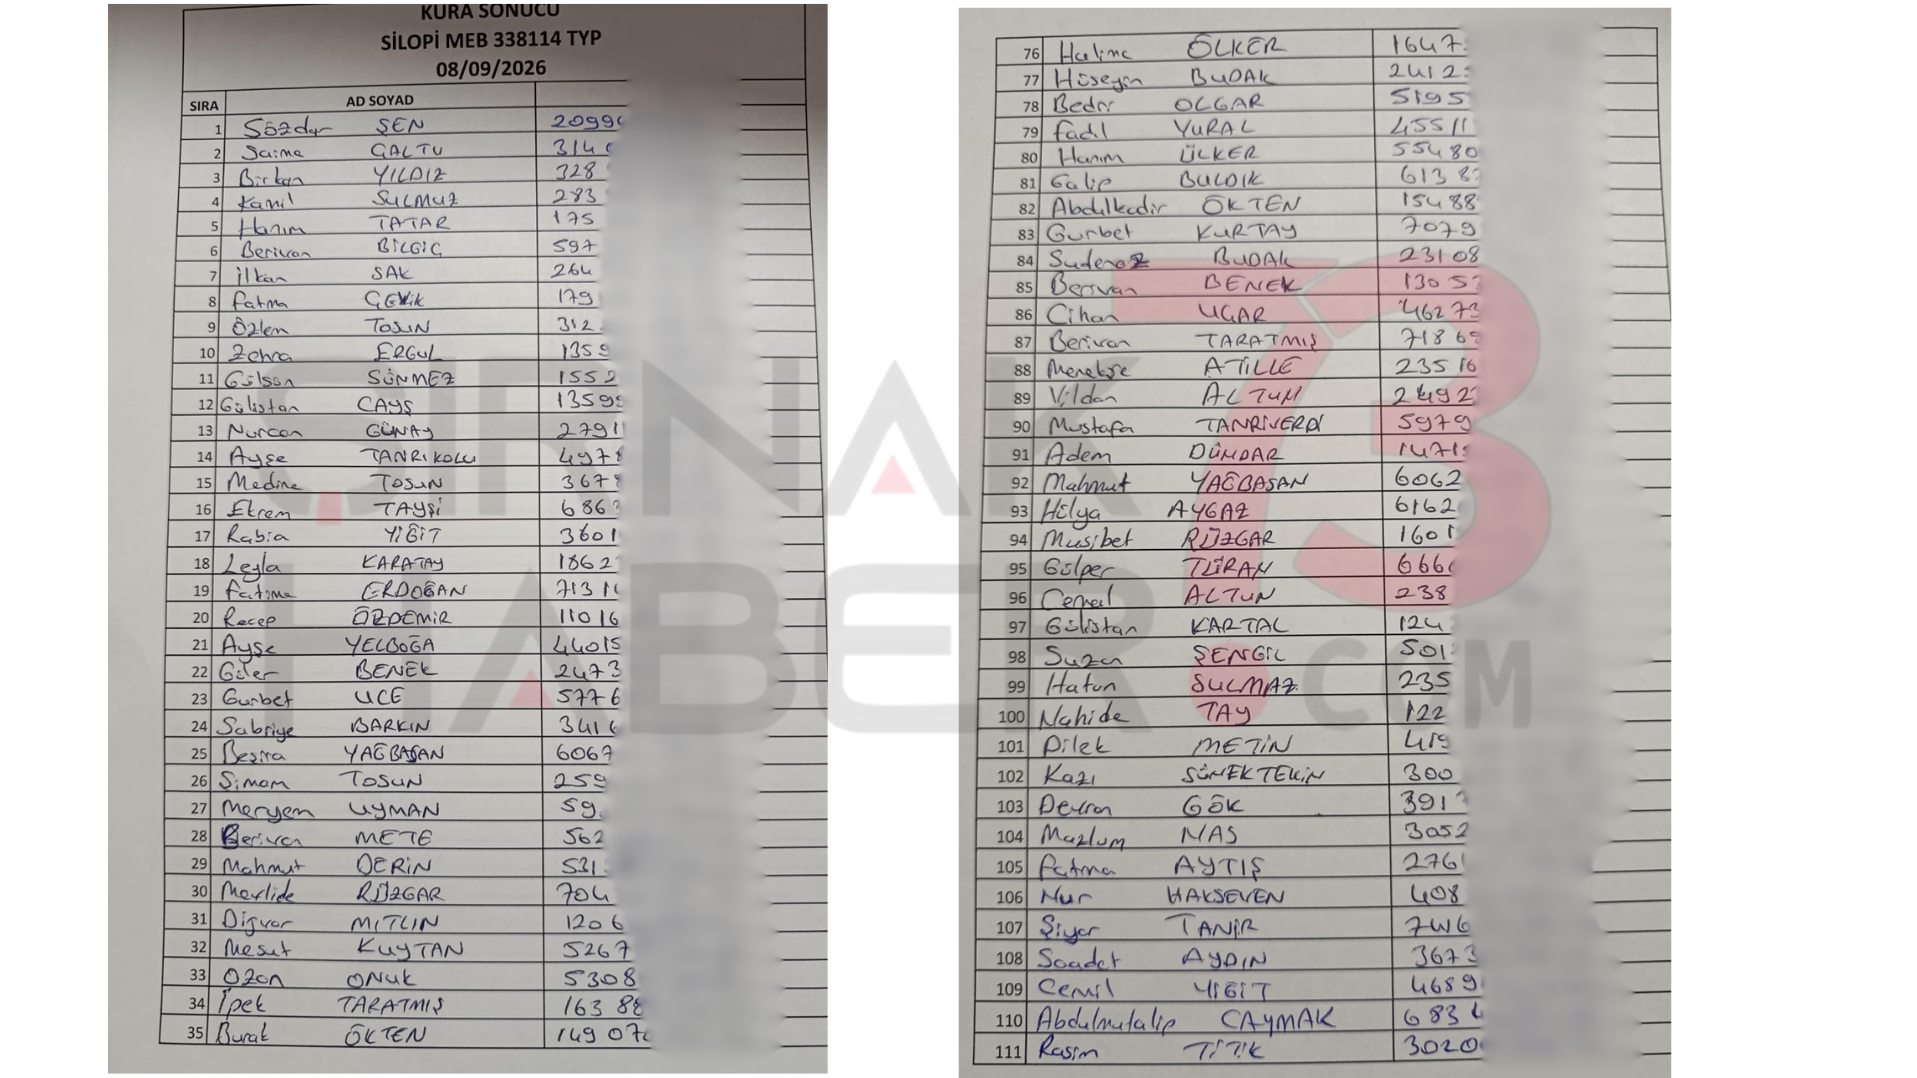 KURA SONUCU
SİLOPİ MEB 338114 TYP
08/09/2026
SIRA AD SOYAD
1 Sözdar ŞEN 2099
2 Saima GALTU 314
3 Birkan YILDIZ 328
4 Kamil SULMUZ 283
5 Hanım TATAR 175
6 Berivan BİLGİÇ 597
7 İlkan SAK 264
8 Fatma ÇEVİK 179
9 Özlem TOSUN 312
10 Zehra ERGUL 1359
11 Gülsün SÖNMEZ 1552
12 Gülistan ÇAYŞ 1359
13 Nurcan GÜNAY 2791
14 Ayşe TANRIKOLU 497
15 Medine TOSUN 367
16 Ekrem TAYŞİ 686
17 Rabia YİĞİT 3601
18 Leyla KARATAY 1862
19 Fatıma ERDOĞAN 7131
20 Recep ÖZDEMİR 11016
21 Ayşe YELBOĞA 44015
22 Güler BENEK 2473
23 Gurbet UCE 5776
24 Sabriye BARKIN 341
25 Beşira YAĞBAŞAN 6067
26 TOSUN 259
27 Meryem UYMAN 59
28 Berivan METE 562
29 Mahmut DERİN 531
30 Mevlide RÜZGAR 704
31 Dijvar MITLIN 1206
32 Mesut KUYTAN 5267
33 Ozan ONUK 5308
34 İpek TARATMIŞ 16388
35 Burak ÖKTEN 14907
76 Halime ÖLKER 1647
77 Hüseyin BUDAK 2412
78 Bedri OLGAR 5195
79 Fadıl YURAL 45511
80 Hanım ÜLKER 55480
81 Galip BULDIK 6138
82 Abdulkadir ÖKTEN 15488
83 Gurbet KURTAY 7079
84 Sudenaz BUDAK 23108
85 Berivan BENEK 1305
86 Cihan UGAR 46273
87 Berivan TARATMIŞ 7186
88 Menekşe ATİLLE 23516
89 Vildan ALTUN 2492
90 Mustafa TANRIVERDİ 5979
91 Adem DÜNDAR 1471
92 Mahmut YAĞBASAN 6062
93 Hülya AYGAZ 6162
94 Musibet RÜZGAR 1601
95 Gülper TURAN 666
96 Cemal ALTUN 238
97 Gülistan KARTAL 124
98 Suzan ŞENGİL 501
99 Hatun SULMAZ 235
100 Nahide TAY 122
101 Dilek METİN 419
102 Kazı SÜNEKTEKİN 300
103 Devran GÖK 391
104 Mazlum NAS 3052
105 Fatma AYTIŞ 276
106 Nur HAKSEVEN 408
107 Şiyar TANİR 746
108 Saadet AYDIN 3673
109 Cemil YİĞİT 4689
110 Abdulmutalip CAYMAK 683
111 Rasim TİTİK 3020
ŞIRNAK 73
HABER.COM